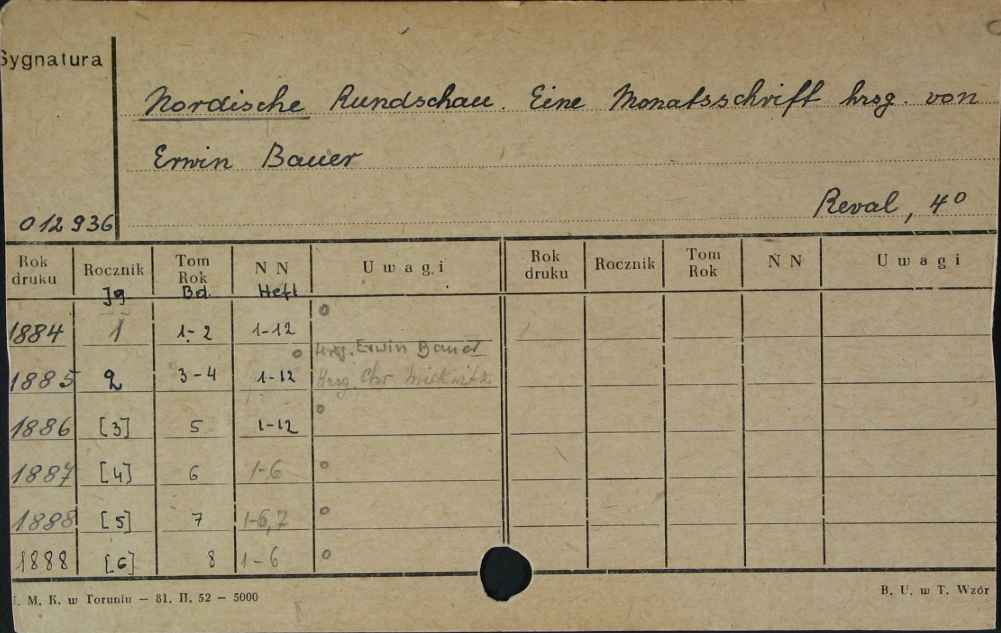 Sygnatura
Nordische Rundschau. Eine Monatsschrift hrsg. von
Erwin Bauer
Reval, 4°
012936
Rok druku Rocznik Tom Rok N N Uwagi Rok druku Rocznik Tom Rok N N Uwagi
Jg Bd. Heft
1884 1 1-2 1-12
Hrsg. Erwin Bauer
1885 2 3-4 1-12 Hrsg. Chr.
1886 [3] 5 1-12
1887 [4] 6 1-6
1888 [5] 7 1-6,7
1888 [6] 8 1-6
M. K. w Toruniu — 81. II. 52 — 5000
B. U. w T. Wzór